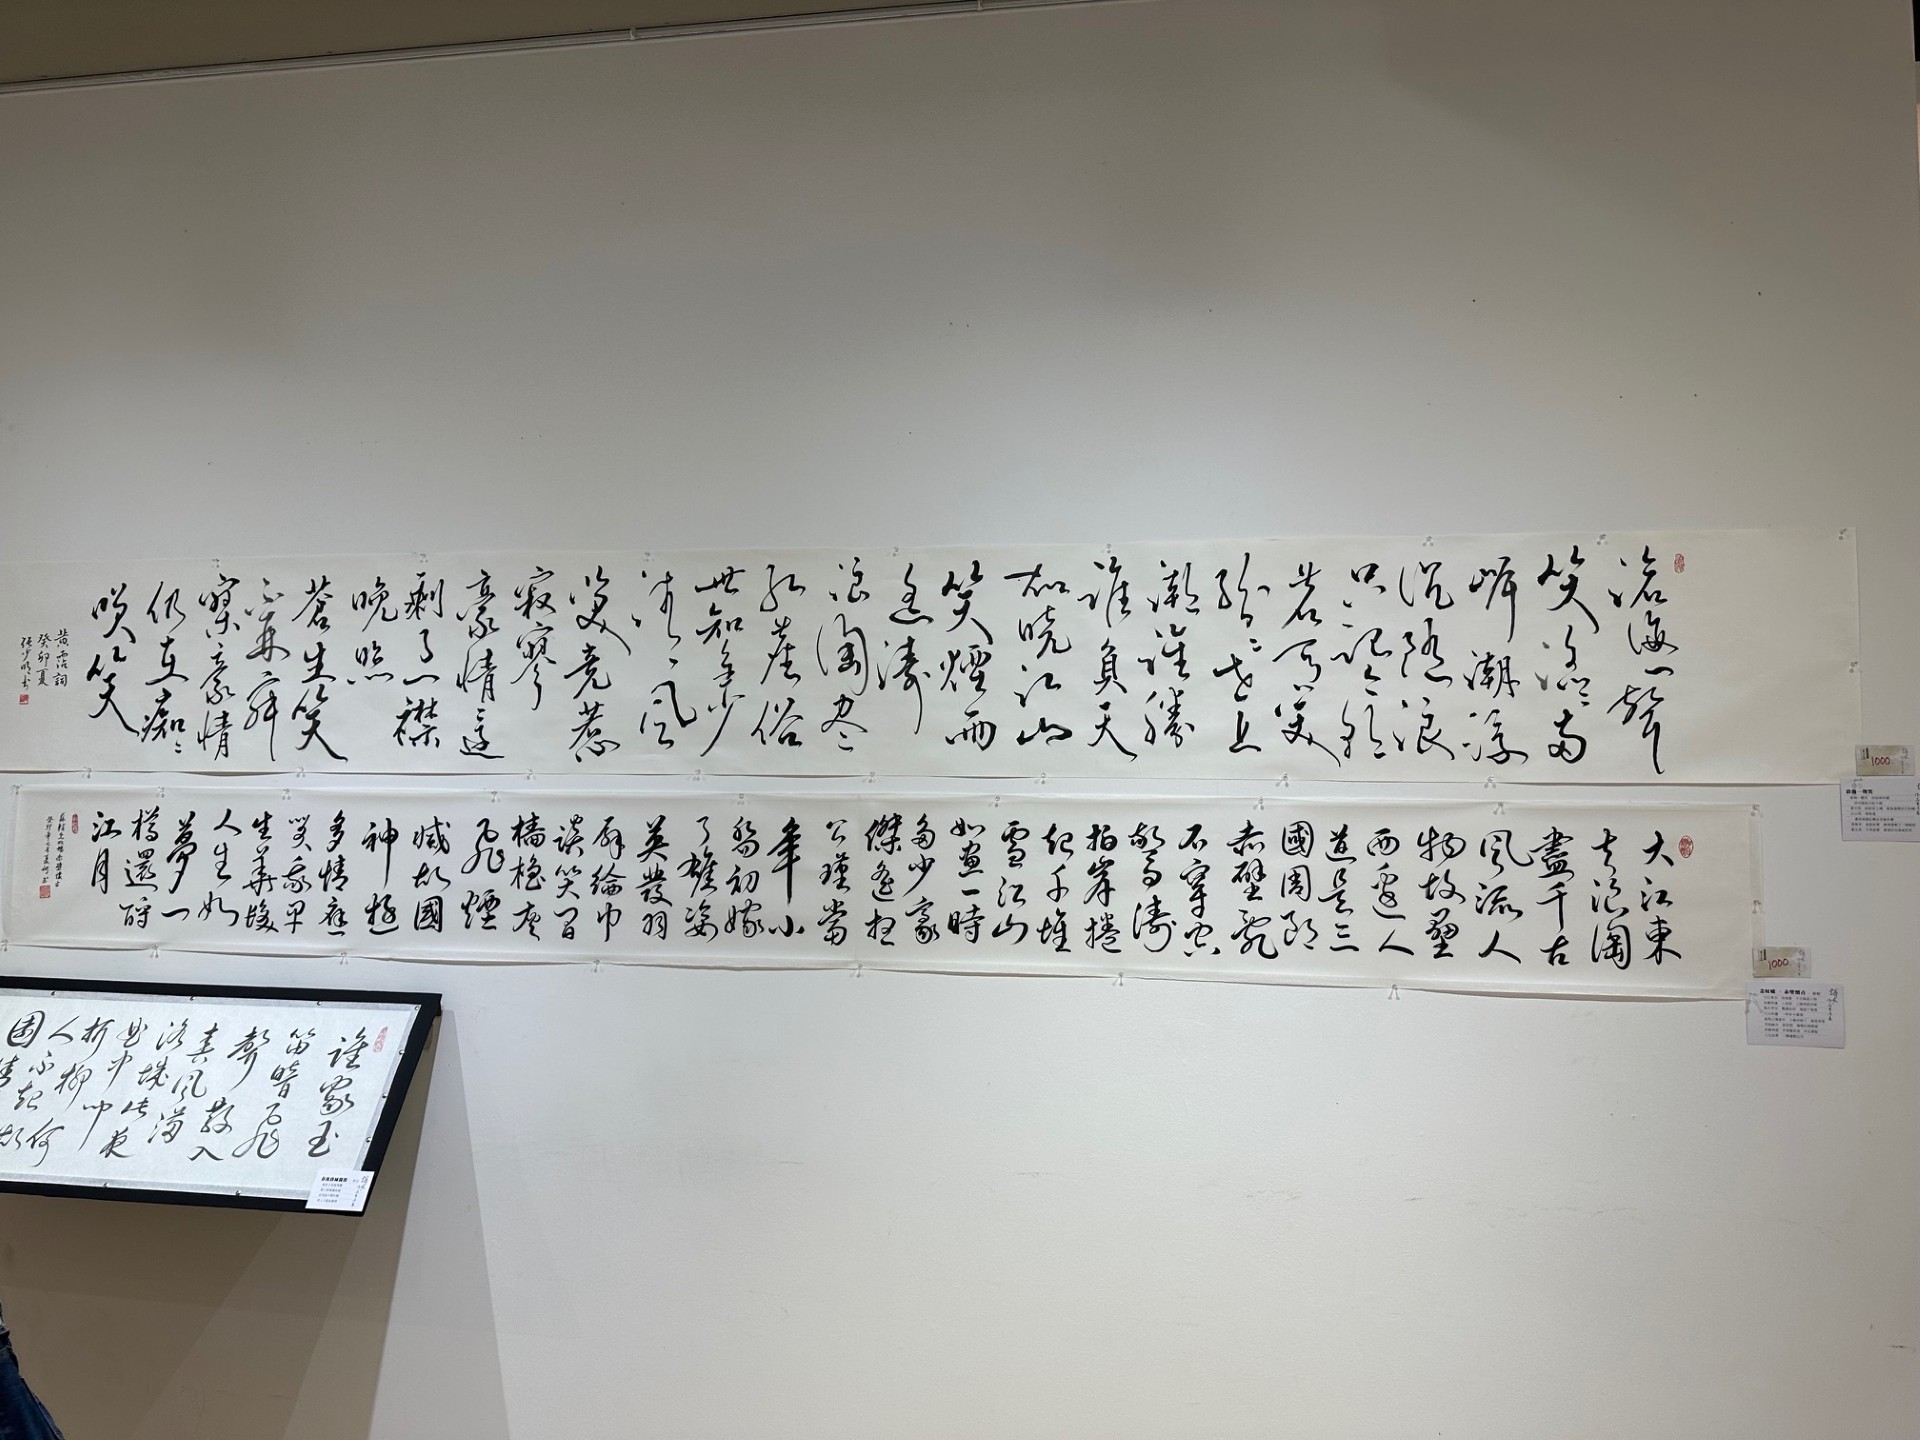 滄海一聲
笑滔滔兩
岸潮浮
沉隨浪
只記今朝
蒼天笑
紛紛世上
潮誰勝
誰負天
知曉江山
笑煙雨
遙濤
浪淘盡
紅塵俗
世知多少
清風
笑竟惹
寂寥
豪情還
剩了一襟
晚照
蒼生笑
不再寂
寥豪情
仍在癡癡
笑笑
黃霑詞
癸卯夏
1000
大江東
去浪淘
盡千古
風流人
物故壘
西邊人
道是三
國周郎
赤壁亂
石穿空
驚濤
拍岸捲
起千堆
雪江山
如畫一時
多少豪
傑遙想
公瑾當
年小
喬初嫁
了雄姿
英發羽
扇綸巾
談笑間
檣櫓灰
飛煙
滅故國
神遊
多情應
笑我早
生華髮
人生如
夢一
樽還酹
江月
1000
誰家玉
笛暗飛
聲散入
春風滿
洛城此夜
曲中聞
折柳何
人不起
故園情